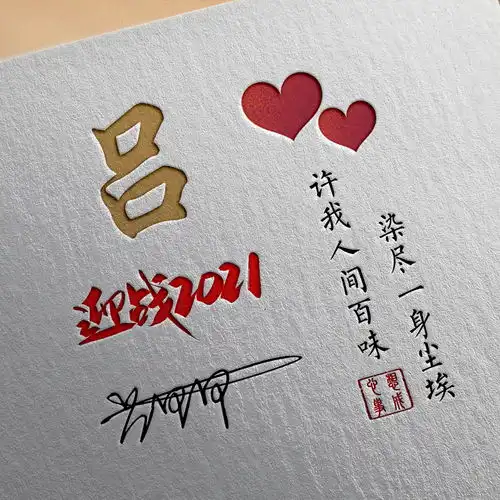 吕
迎战2021
许我人间百味
染尽一身尘埃
心想
事成